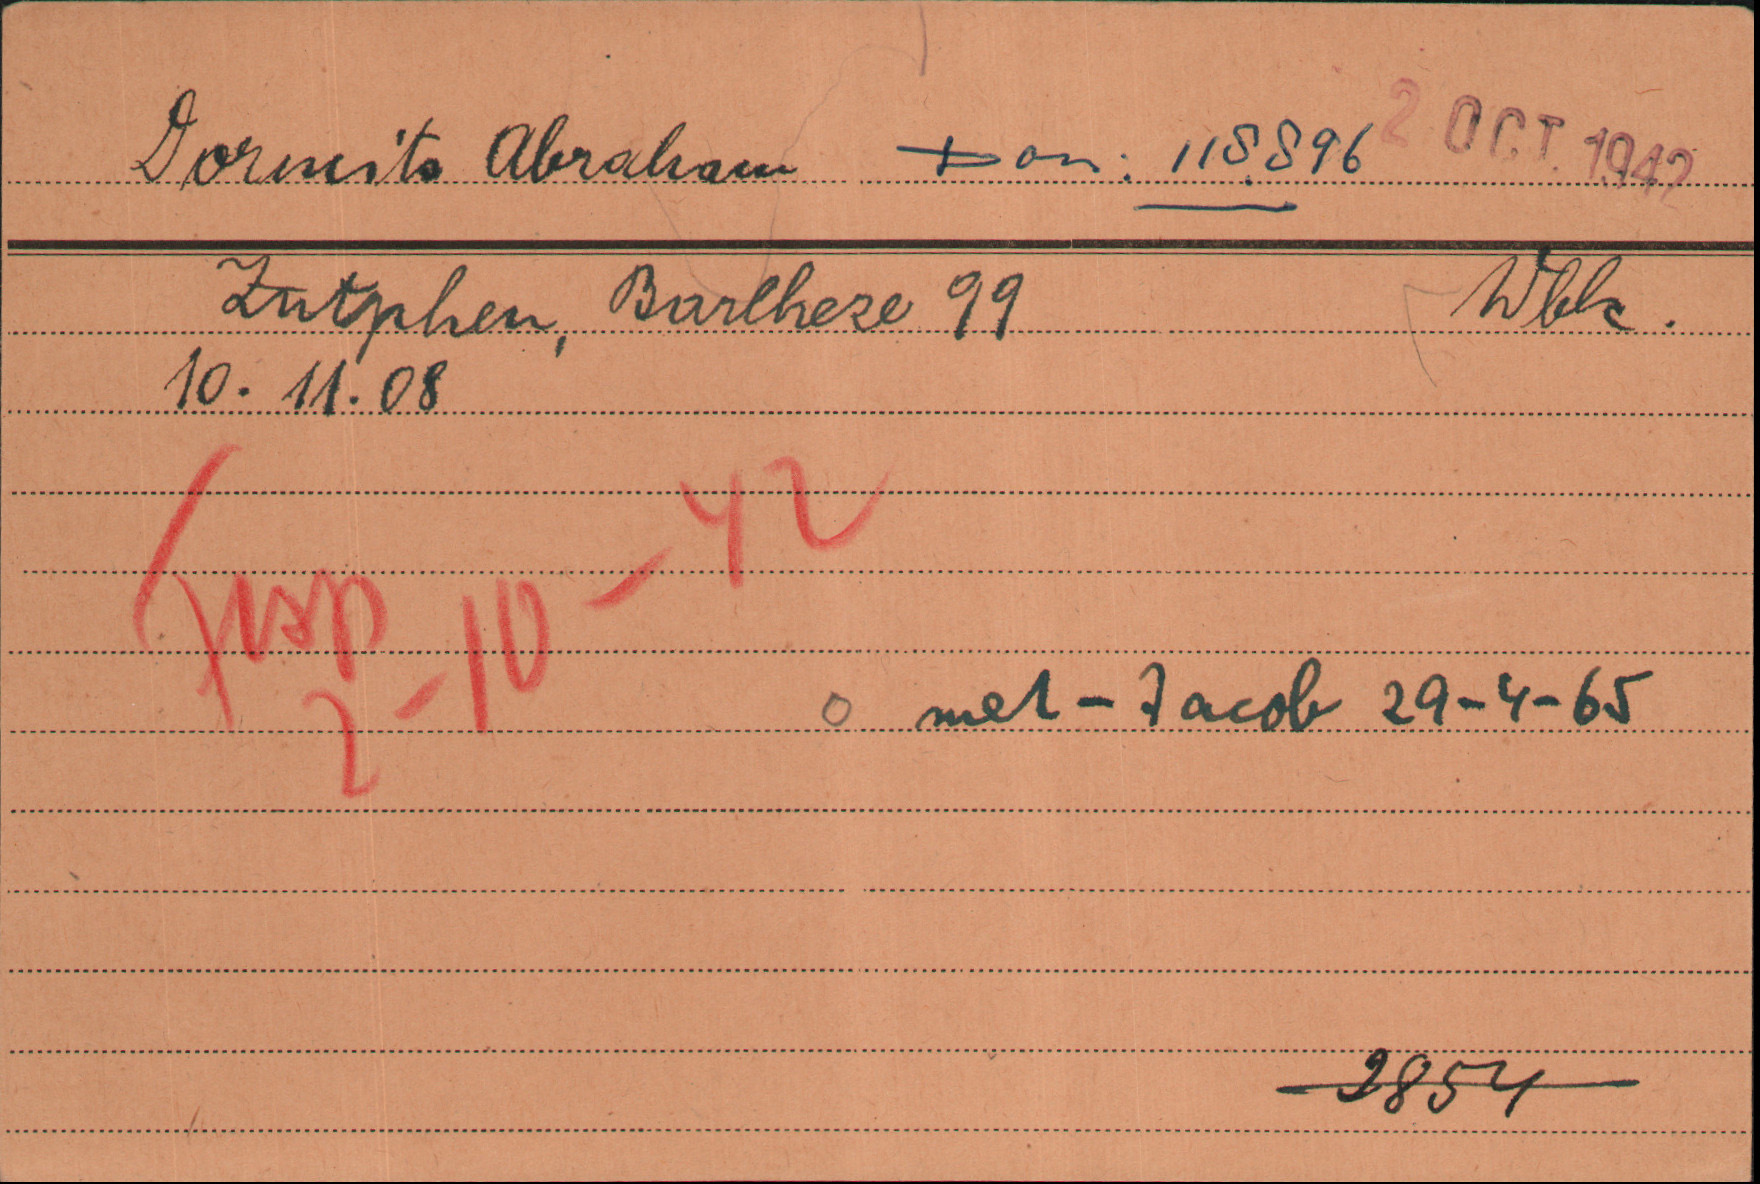 Dormits Abraham Don: 118.896 2 OCT. 1942
Zutphen, Barlheze 99 Wbk.
10. 11. 08
2-10-42
met - Jacob 29-4-65
2854